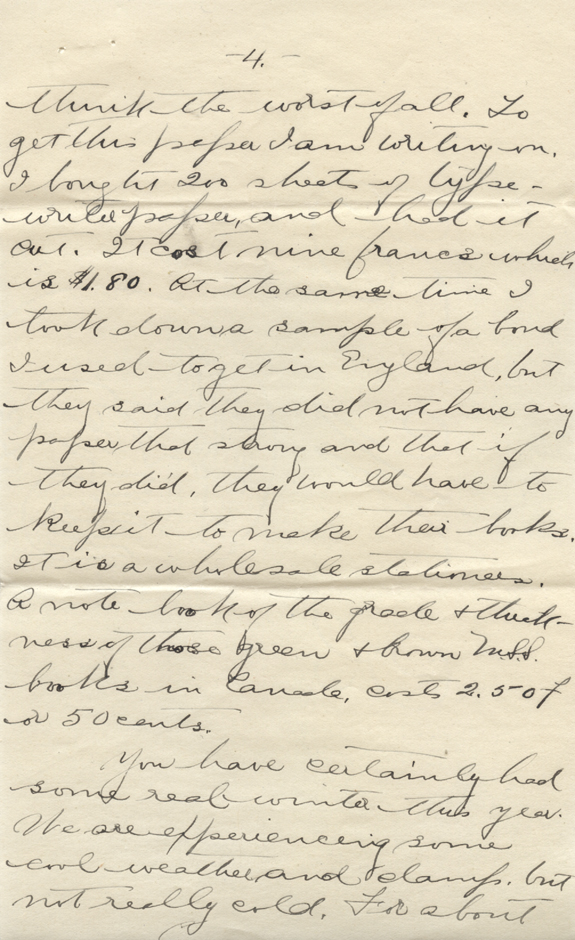 -4.-
think the worst of all. To
get this paper I am writing on,
I bought 200 sheets of type-
writer paper, and had it
cut. It cost nine francs which
is $1.80. At the same time I
took down a sample of a bond
I used to get in England, but
they said they did not have any
paper that strong and that if
they did, they would have to
keep it to make their books.
It is a wholesale stationers.
A note book of the grade & thick-
ness of those green & brown MSS.
books in Canada, costs 2.50f
or 50 cents.
You have certainly had
some real winter this year.
We are experiencing some
cool weather and damp, but
not really cold. For about